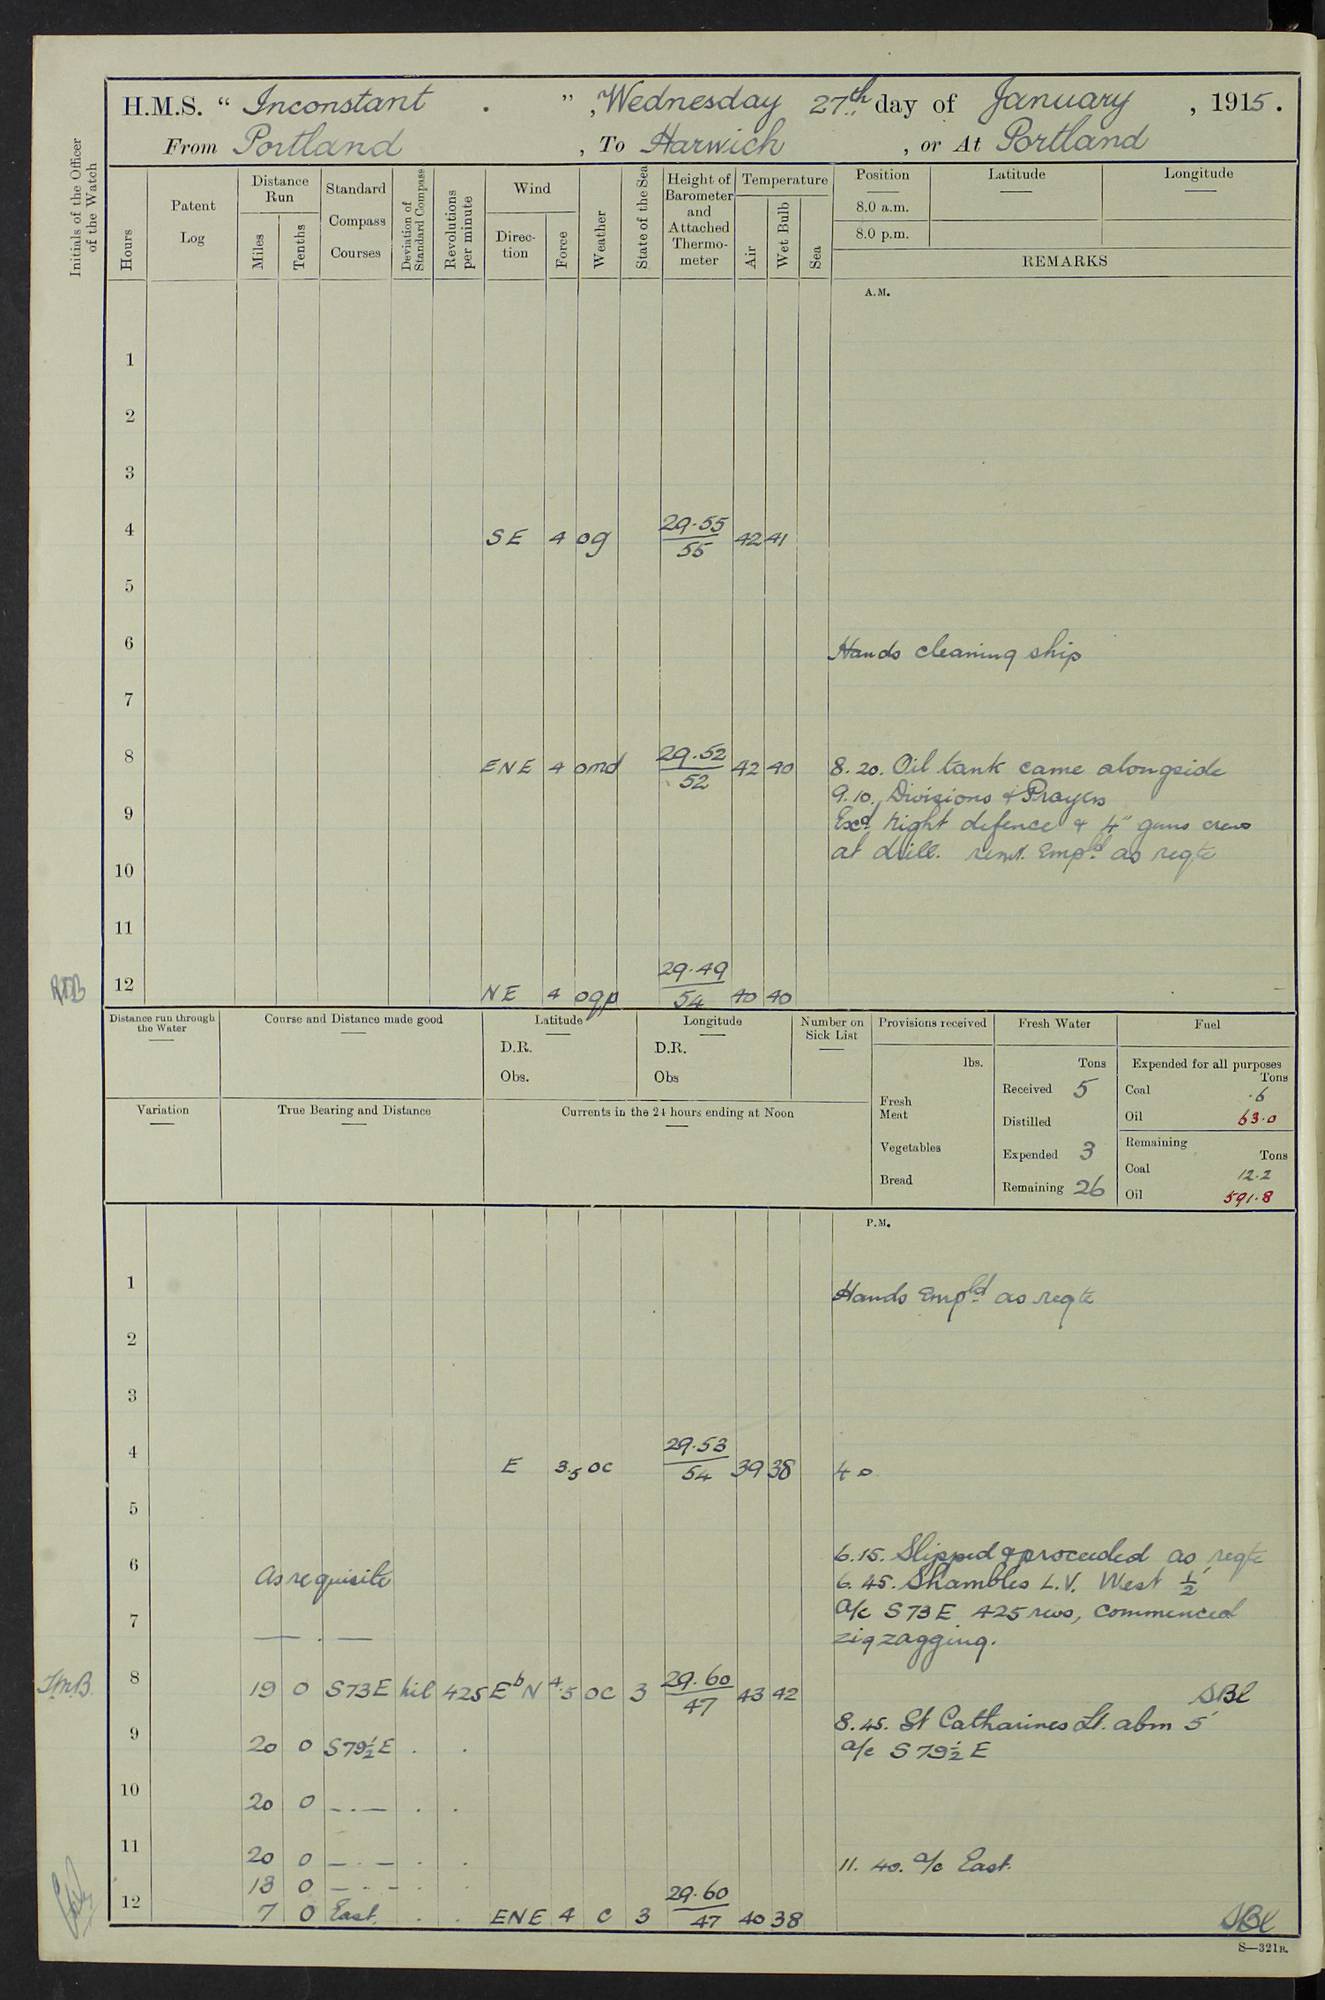 H.M.S. " Inconstant . " , Wednesday 27th day of January , 1915 .
From Portland , To Harwich , or At Portland
Initials of the Officer of the Watch
Hours
Patent Log
Distance Run
Miles
Tenths
Standard Compass Courses
Deviation of Standard Compass
Revolutions per minute
Wind
Direc-tion
Force
Weather
State of the Sea
Height of Barometer and Attached Thermo-meter
Temperature
Air
Wet Bulb
Sea
Position Latitude Longitude
8.0 a.m.
8.0 p.m.
REMARKS
A.M.
1
2
3
4 SE 4 og 29.55 / 55 42 41
5
6 Hands cleaning ship
7
8 ENE 4 omd 29.52 / 52 42 40 8.20. Oil tank came alongside
9.10. Divisions & Prayers
9 Excd Night defence & 4" guns crews
at drill. remr. Empld as reqte
10
11
RTB 12 NE 4 oqp 29.49 / 54 40 40
Distance run through the Water
Course and Distance made good
Latitude
D.R.
Obs.
Longitude
D.R.
Obs
Number on Sick List
Variation
True Bearing and Distance
Currents in the 24 hours ending at Noon
Provisions received
lbs.
Fresh Meat
Vegetables
Bread
Fresh Water
Tons
Received 5
Distilled
Expended 3
Remaining 26
Fuel
Expended for all purposes
Tons
Coal .6
Oil 63.0
Remaining
Tons
Coal 12.2
Oil 591.8
P.M.
1 Hands Empld as reqte
2
3
4 E 3.5 oc 29.53 / 54 39 38 40
5
6.15. Slipped & proceeded as reqte
6 As requisite 6.45. Shambles L.V. West 1/2'
a/c S 73 E 425 revs, commenced
7 — . — zigzagging.
8 19 0 S73E nil 425 E b N 4.5 oc 3 29.60 / 47 43 42 SBl
8.45. St Catharines Lt. abm 5'
9 20 0 S79½E . . a/c S 79½ E
10 20 0 — . — . .
11 20 0 — . — . . 11.40. a/c East.
13 0 — . — . .
12 7 0 East . . ENE 4 c 3 29.60 / 47 40 38 SBl
S—321B.